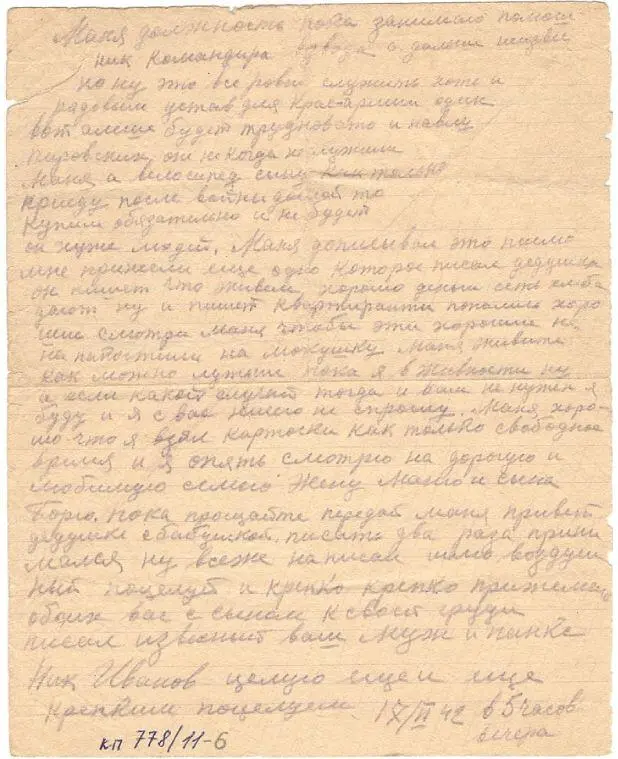 Маня должность пока занимаю помош
ник командира взвода а дальше неизве
но ну это все ровно служить хоть и
рядовым устав для крас-армии один
вот алеше будет трудновато и павлу
они некогда не служили
Маня а велосипед сыну как только
приеду после войны домой то
купим обязательно и не будет
он хуже людей. Маня дописывал это письмо
мне принесли еще одно которое писал дедушка
он пишет что живем хорошо деньги есть хлеба
дают ну и пишет квартиранти попались хоро
шие смотри Маня чтобы эти хорошие не
на макушку Маня живите
как можно лутьше пока я в живности ну
а если какой случий тогда и вам не нужен я
буду и я с вас ничего не спрошу. Маня хоро-
шо что я взял карточки как только свободное
время и я опять смотрю на дорогую и
любимую семью Жену Маню и сына
Борю. пока прощайте передай Маня привет
дедушке с бабушкой. писать два раза прини
мался ну всеже написал шлю воздуш
ный поцелуй и крепко крепко прижемаю
обоих вас с сыном к своей груди
писал известный ваш муж и папка
Ник Иванов целую еще и еще
крепким поцелуем 17/II 42 в 5 часов
вечера
кп 778/11-6